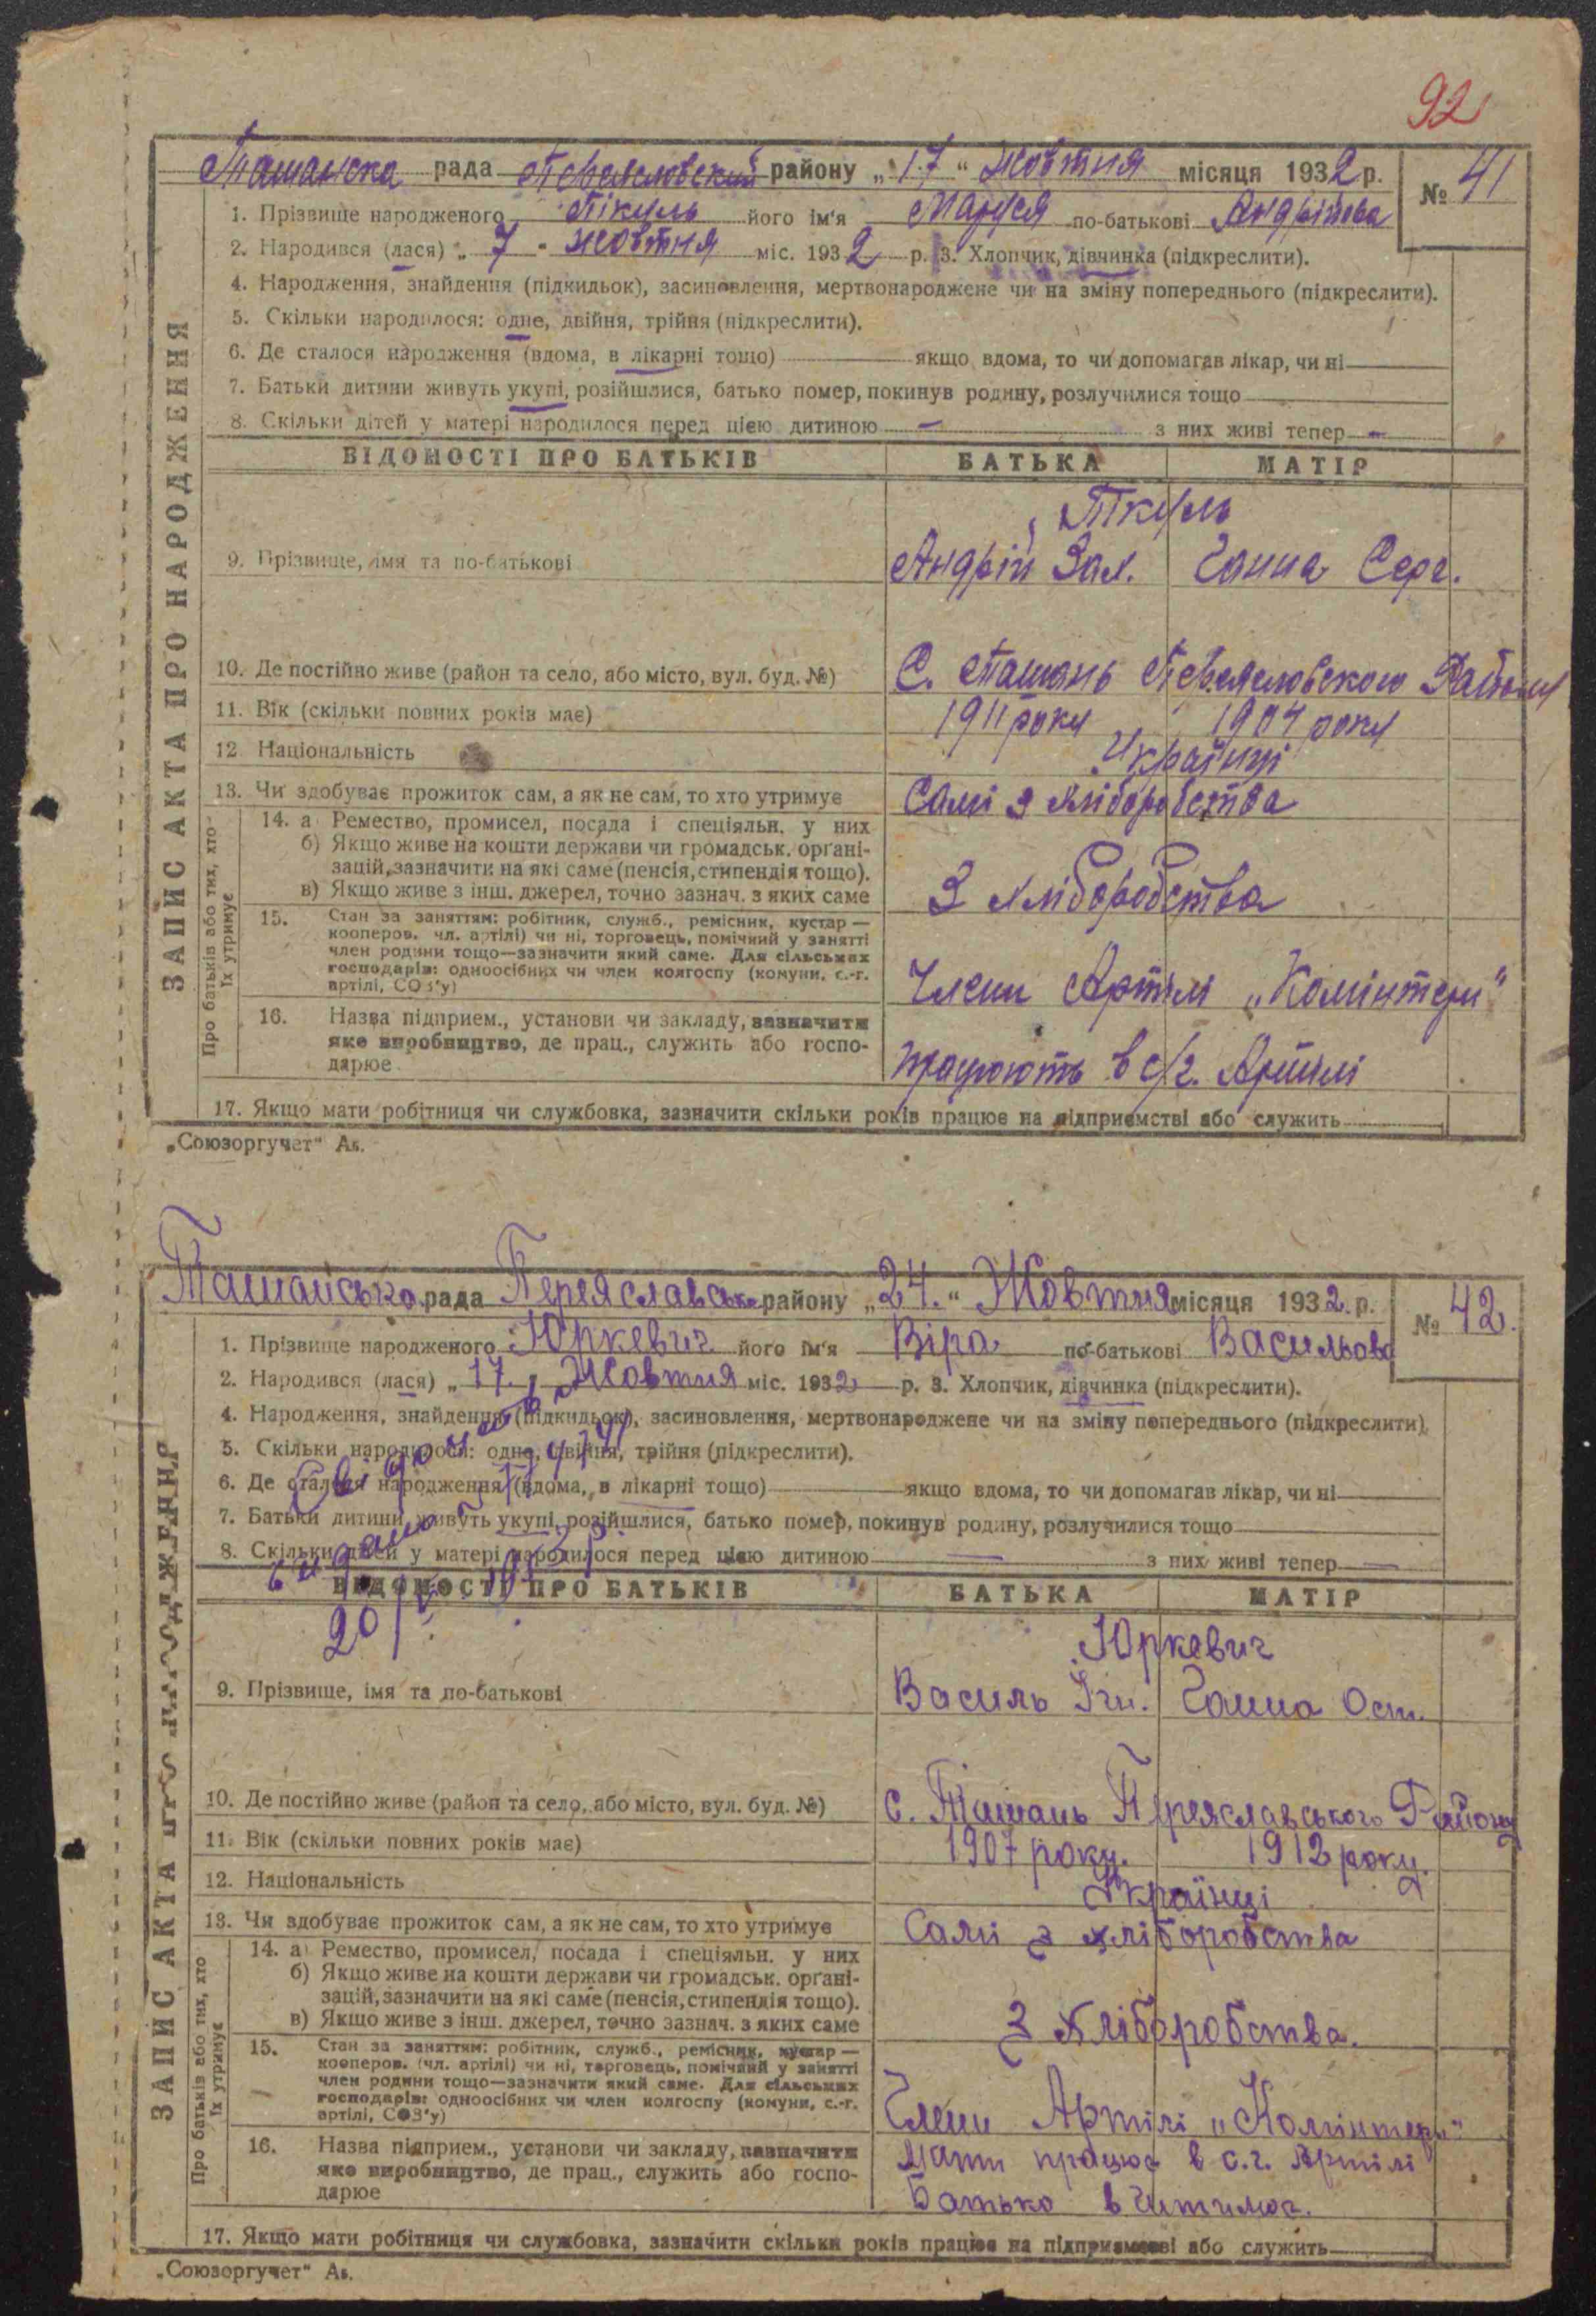 92
Ташанска рада Переяславский району „17“ Жовтня місяця 1932 р. № 41
1. Прізвище народженого Пікуль його ім'я Маруся по-батькові Андріїова
2. Народився (лася) „7“ жовтня міс. 1932 р. 3. Хлопчик, дівчинка (підкреслити).
4. Народження, знайдення (підкидьок), засиновлення, мертвонароджене чи на зміну попереднього (підкреслити).
5. Скільки народилося: одне, двійня, трійня (підкреслити).
6. Де сталося народження (вдома, в лікарні тощо) якщо вдома, то чи допомагав лікар, чи ні
7. Батьки дитини живуть укупі, розійшлися, батько помер, покинув родину, розлучилися тощо
8. Скільки дітей у матері народилося перед цією дитиною — з них живі тепер —
ЗАПИС АКТА ПРО НАРОДЖЕННЯ
ВІДОМОСТІ ПРО БАТЬКІВ БАТЬКА МАТІР
Пікуль
9. Прізвище, імя та по-батькові Андрій Зах. Ганна Серг.
10. Де постійно живе (район та село, або місто, вул. буд. №) С. Ташань Переяславского Району
11. Вік (скільки повних років має) 1911 року 1904 року
12 Національність Українці
13. Чи здобуває прожиток сам, а як не сам, то хто утримує Самі з хліборобства
Про батьків або тих, хто їх утримує
14. а Ремество, промисел, посада і спеціяльн. у них
б) Якщо живе на кошти держави чи громадськ. органі-
зацій, зазначити на які саме (пенсія, стипендія тощо).
в) Якщо живе з інш. джерел, точно зазнач. з яких саме З хліборобства
15. Стан за заняттям: робітник, служб., ремісник, кустар —
кооперов. чл. артілі) чи ні, торговець, помічний у занятті
член родини тощо—зазначити який саме. Для сільських
господарів: одноосібних чи член колгоспу (комуни, с.-г.
артілі, СОЗ'у) Члени Артілі „Комінтерн“
16. Назва підприєм., установи чи закладу, зазначити
яке виробництво, де прац., служить або госпо-
дарює працюють в с/г. Артілі
17. Якщо мати робітниця чи службовка, зазначити скільки років працює на підприємстві або служить
„Союзоргучет“ Ак.
Ташанська рада Переяславське району „24.“ Жовтня місяця 1932 р. № 42.
1. Прізвище народженого Юркевич його ім'я Віра по-батькові Васильова
2. Народився (лася) „17“ Жовтня міс. 1932 р. 3. Хлопчик, дівчинка (підкреслити).
4. Народження, знайдення (підкидьок), засиновлення, мертвонароджене чи на зміну попереднього (підкреслити).
5. Скільки народилося: одне, двійня, трійня (підкреслити).
6. Де сталося народження (вдома, в лікарні тощо) якщо вдома, то чи допомагав лікар, чи ні
7. Батьки дитини живуть укупі, розійшлися, батько помер, покинув родину, розлучилися тощо
8. Скільки дітей у матері народилося перед цією дитиною — з них живі тепер —
ЗАПИС АКТА ПРО НАРОДЖЕННЯ
ВІДОМОСТІ ПРО БАТЬКІВ БАТЬКА МАТІР
Юркевич
9. Прізвище, імя та по-батькові Василь Ігн. Ганна Ост.
10. Де постійно живе (район та село, або місто, вул. буд. №) с. Ташань Переяславського Району
11. Вік (скільки повних років має) 1907 року. 1912 року.
12. Національність Українці
13. Чи здобуває прожиток сам, а як не сам, то хто утримує Самі з хліборобства
Про батьків або тих, хто їх утримує
14. а) Ремество, промисел, посада і спеціяльн. у них
б) Якщо живе на кошти держави чи громадськ. органі-
зацій, зазначити на які саме (пенсія, стипендія тощо).
в) Якщо живе з інш. джерел, точно зазнач. з яких саме З хліборобства.
15. Стан за заняттям: робітник, служб., ремісник, кустар —
кооперов. (чл. артілі) чи ні, торговець, помічний у занятті
член родини тощо—зазначити який саме. Для сільських
господарів: одноосібних чи член колгоспу (комуни, с.-г.
артілі, СОЗ'у) Члени Артілі „Комінтерн“
16. Назва підприєм., установи чи закладу, зазначити Мати працює в с.г. Артілі
яке виробництво, де прац., служить або госпо-
дарює Батько в
17. Якщо мати робітниця чи службовка, зазначити скільки років працює на підприємстві або служить
„Союзоргучет“ Ак.